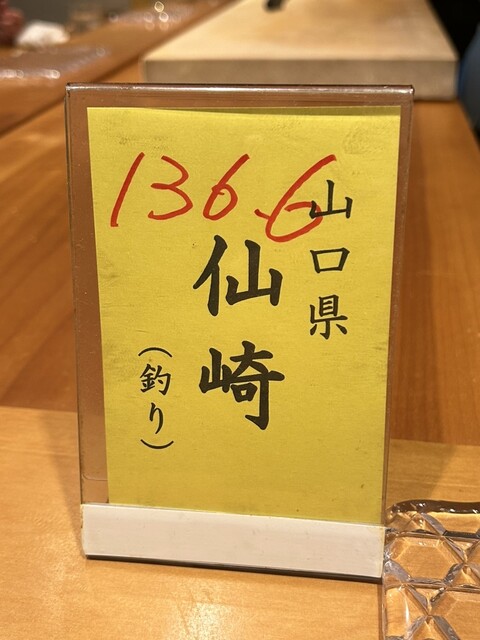 136.6
山口県
仙崎
（釣り）